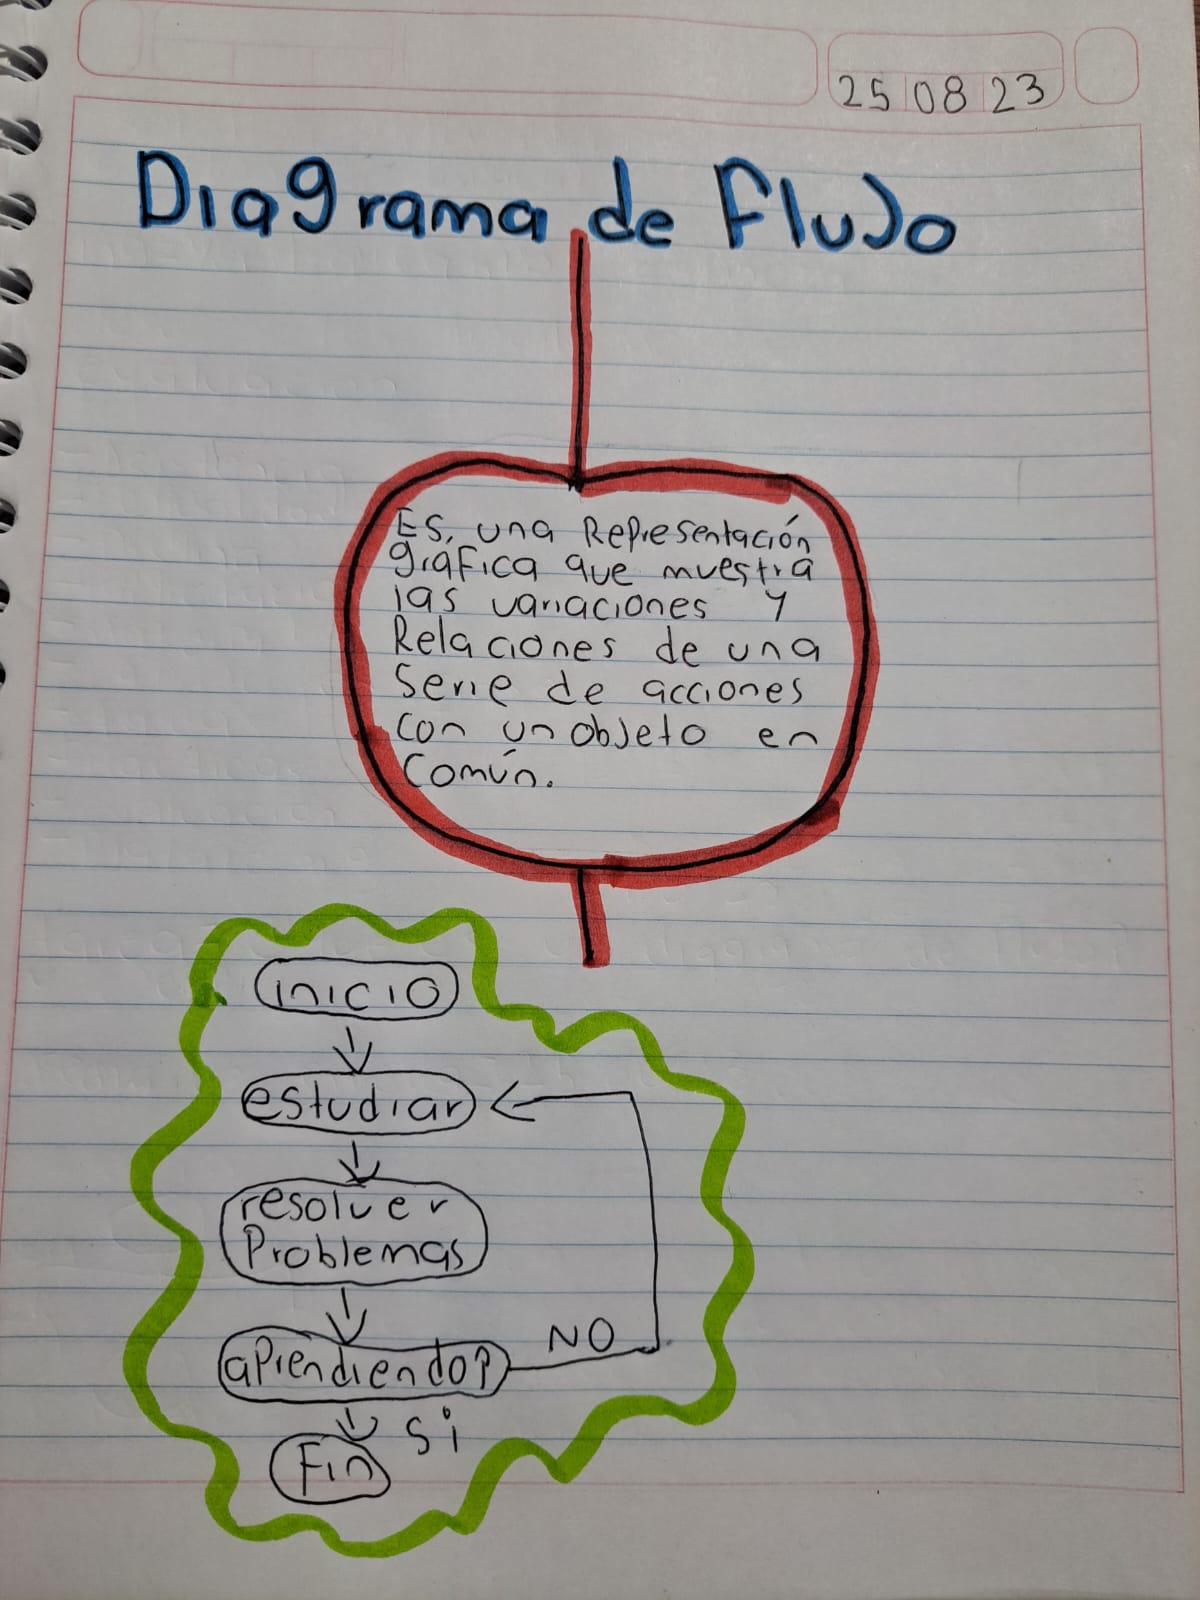 25 08 23
Diagrama de FluJo
Es, una Representación
gráfica que muestra
las variaciones y
Relaciones de una
Serie de acciones
con un objeto en
Común.
inicio
estudiar
resolver
Problemas
aprendiendo?
NO
si
Fin